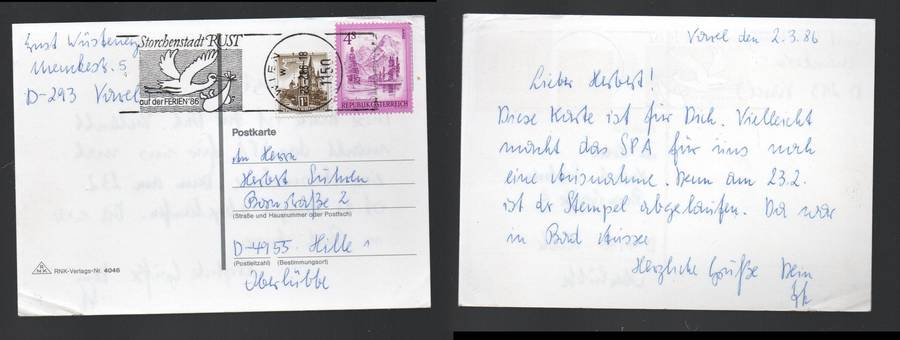 Ernst Wüsteney
Menckestr. 5
D-293 Varel
Storchenstadt RUST
auf der FERIEN'86
WIEN
1150
4S
REPUBLIK ÖSTERREICH
Postkarte
An Herrn
Herbert
Bornstraße 2
(Straße und Hausnummer oder Postfach)
D-4955 Hille 1
(Postleitzahl) (Bestimmungsort)
Oberlübbe
RNK
RNK-Verlags-Nr. 4046
Varel den 2.3.86
Lieber Herbert!
Diese Karte ist für Dich. Vielleicht
macht das SPA für uns noch
eine Ausnahme. Denn am 23.2.
ist dr Stempel abgelaufen. Da war
in Bad Aussee
Herzliche Grüße Dein